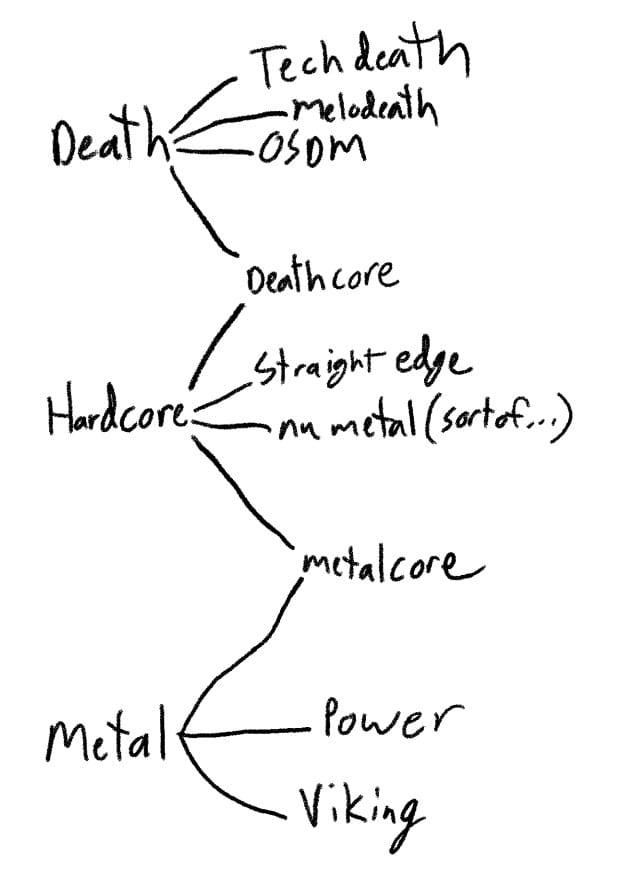 Tech death
melodeath
Death
OSDM
Deathcore
Straight edge
Hardcore
nu metal (sort of...)
metalcore
Power
Metal
Viking